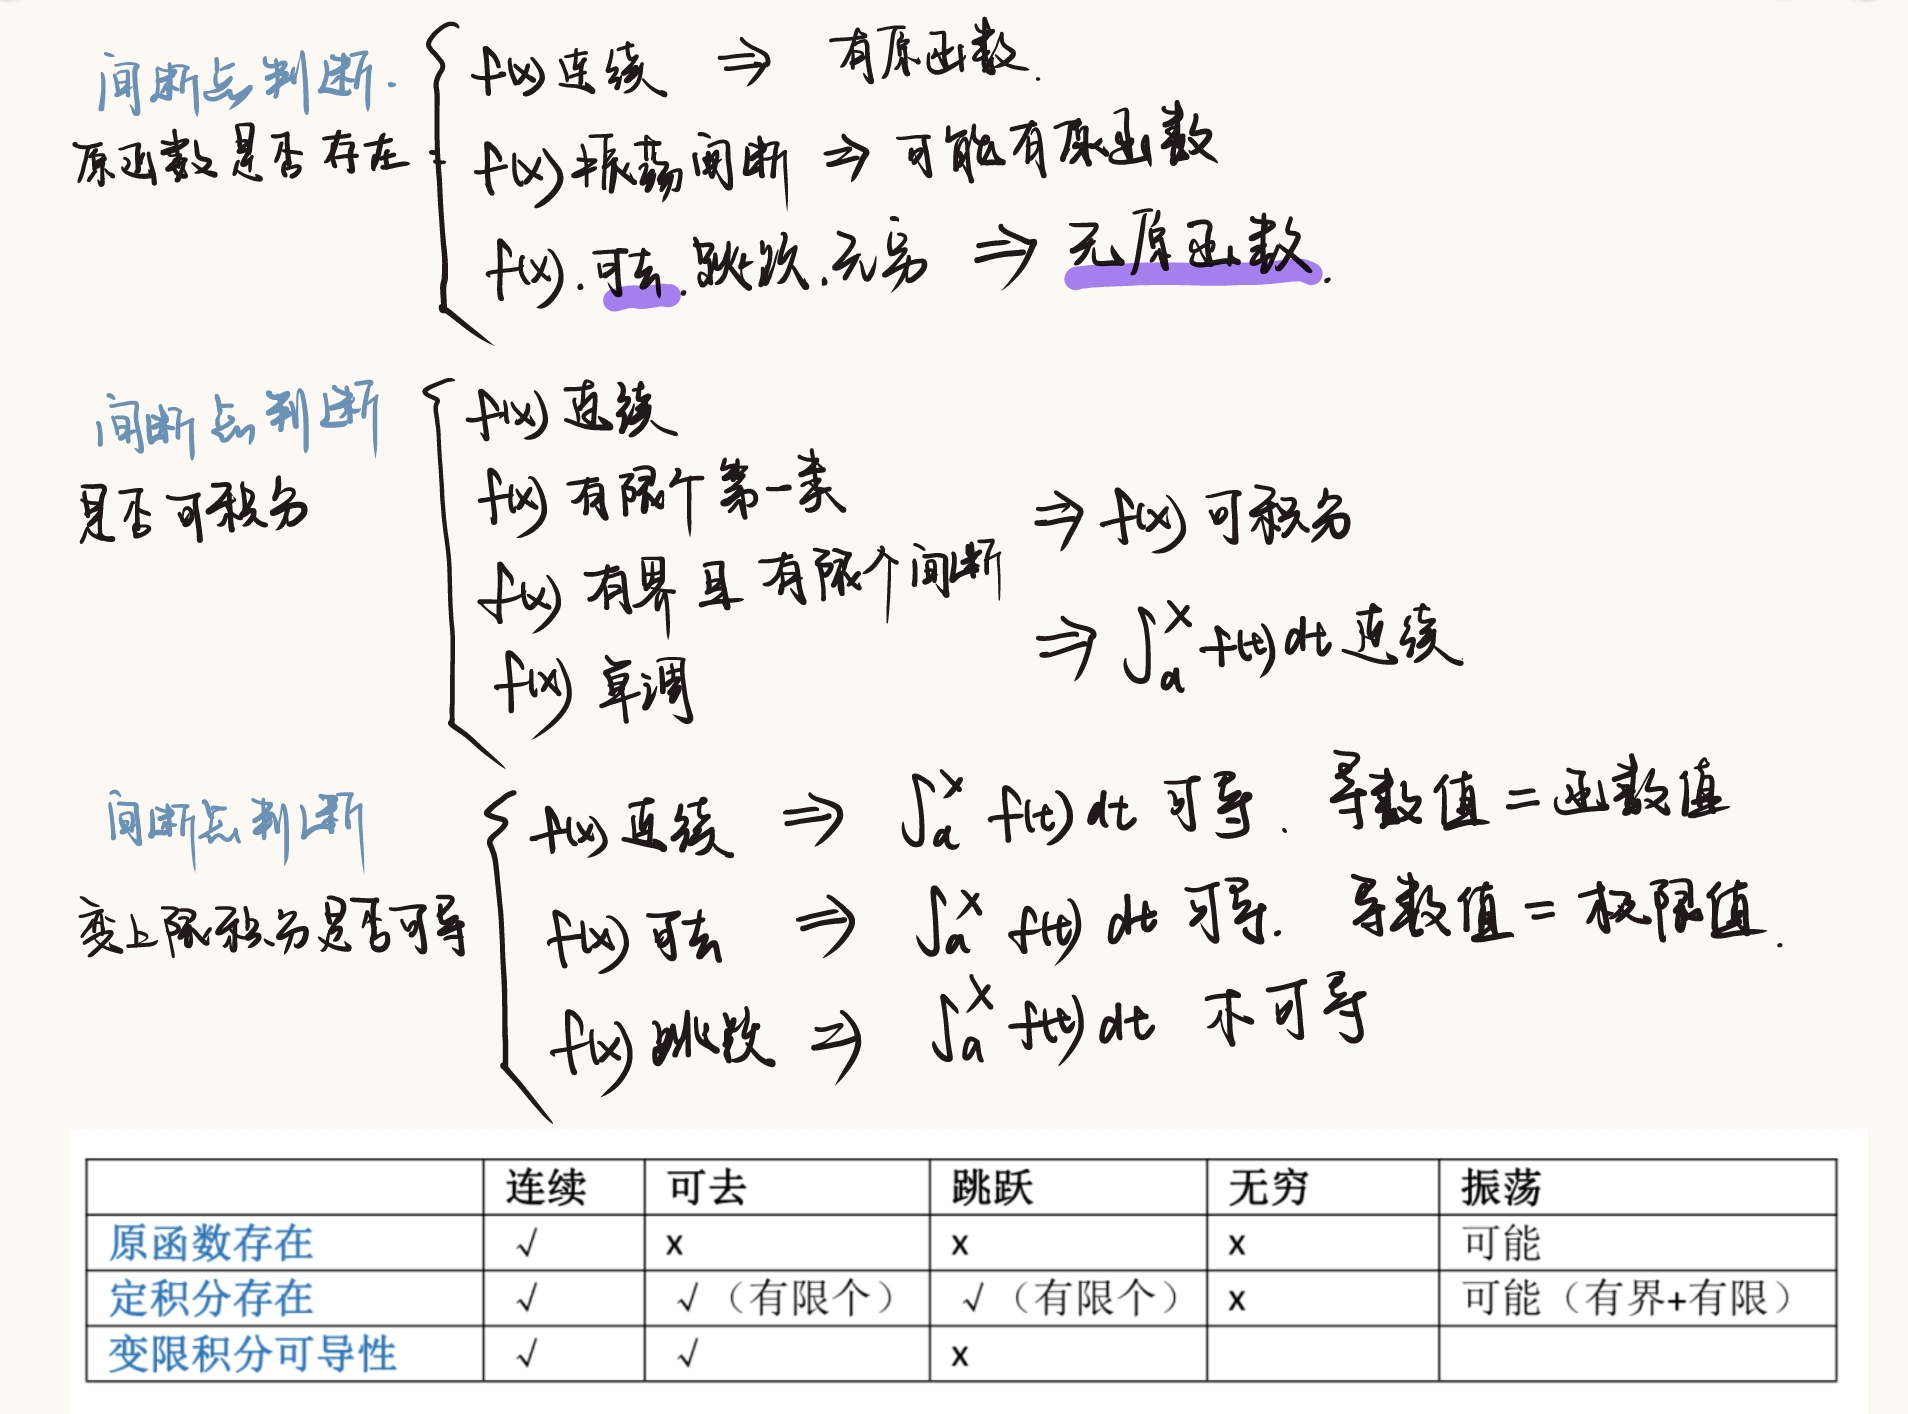 间断点判断.
原函数是否存在
f(x) 连续 ⇒ 有原函数.
f(x) 振荡间断 ⇒ 可能有原函数
f(x). 可去. 跳跃. 无穷 ⇒ 无原函数.
间断点判断
是否可积分
f(x) 连续
f(x) 有限个第一类
f(x) 有界且有限个间断
f(x) 单调
⇒ f(x) 可积分
⇒ ∫ₐˣ f(t) dt 连续
间断点判断
变上限积分是否可导
f(x) 连续 ⇒ ∫ₐˣ f(t) dt 可导. 导数值 = 函数值
f(x) 可去 ⇒ ∫ₐˣ f(t) dt 可导. 导数值 = 极限值.
f(x) 跳跃 ⇒ ∫ₐˣ f(t) dt 不可导
连续 可去 跳跃 无穷 振荡
原函数存在 √ x x x 可能
定积分存在 √ √（有限个） √（有限个） x 可能（有界+有限）
变限积分可导性 √ √ x